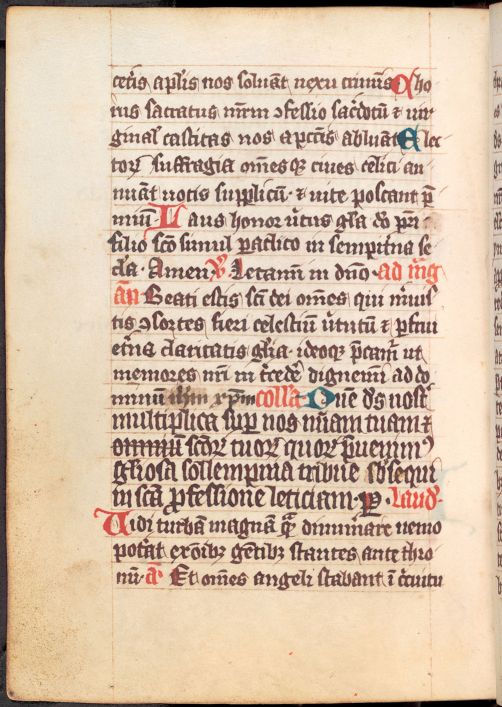 ceteris aplis nos soluāt nexu criminis Cho
rus sacratus mrm ɔfessio sacdotū ⁊ vir
ginal castitas nos a pctis abluāt Elec
toꝝ suffragia om̄esqꝫ ciues celici an
nuāt uotis supplicū ⁊ uite poscant p̄
miū Laus honor u̇tus gl̄a do pr̄i ⁊
filio sc̄o simul paclito in sempit̄na se
cl̄a Amen V̄ Letamī in dn̄o ad m̄g
an̄ Beati estis sc̄i dei om̄es qui mi'uis
tis ɔsortes fieri celestiū u̇tutū ⁊ pfrui
et̄na claritatis gl̄ia ideoqꝫ p̄cam̄r ut
memores nr̄i int̄cede dignemī ad do
minū ihm xpm coll̄a Dn̄e ds nost'
multiplica sup nos mi̅am tuam ⁊
omniū sc̄oꝝ tuoꝝ quoꝝ p̄uenimꝰ
gl̄iosa sollempnia tribue sbsequi
in sc̄a ꝓfessione leticiam p Laud'
Uidi turbā magnā q̄ dinum̄are nemo
pot̄at ex o̅ibꝫ gētibꝫ stantes ante thro
nū a̅ Et om̄es angeli stabant ī c̄cuitu